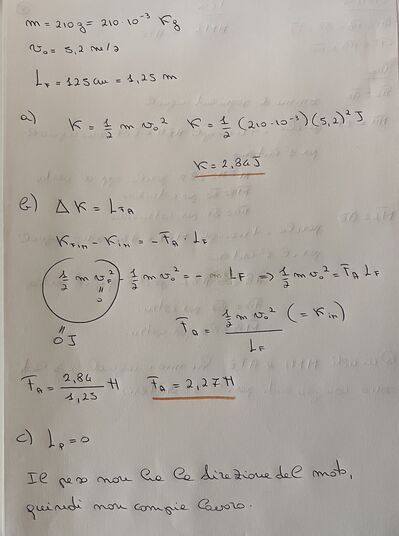 m = 210 g = 210 · 10⁻³ Kg
v₀ = 5,2 m/s
L_F = 125 cm = 1,25 m
a) K = 1/2 m v₀² K = 1/2 (210·10⁻³)(5,2)² J
K = 2,84 J
b) Δ K = L_FA
K_fin - K_in = - F_A · L_F
1/2 m v_F² - 1/2 m v₀² = - L_F => 1/2 m v₀² = F_A L_F
" 0
" 0 J
F_A = 1/2 m v₀² (= K in) / L_F
F_A = 2,84 / 1,25 N F_A = 2,27 N
c) L_P = 0
Il peso non ha la direzione del moto,
quindi non compie lavoro.